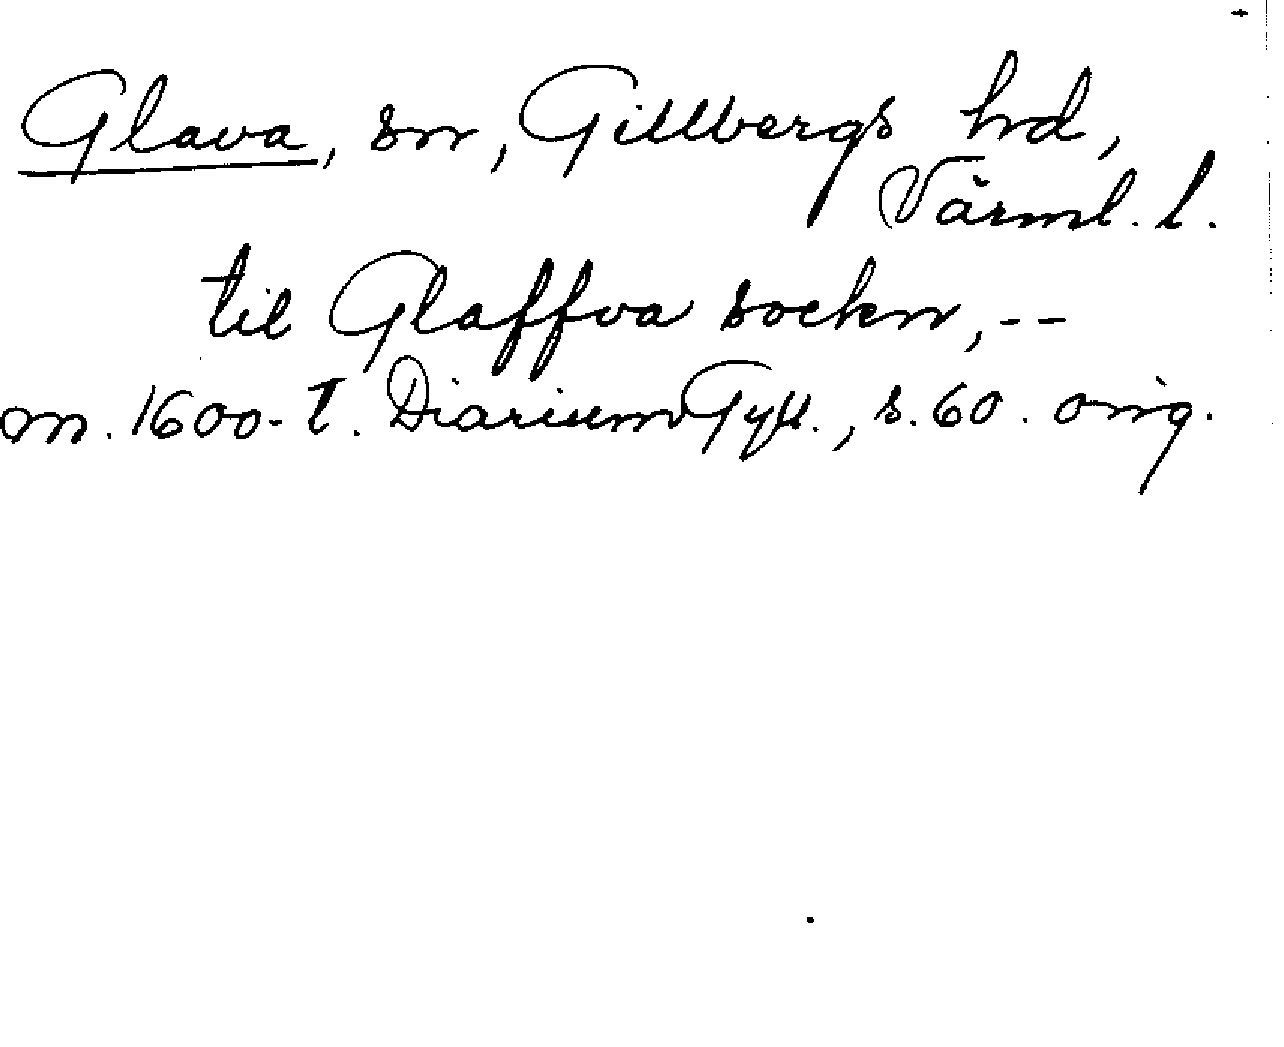 Glava, sn, Gillbergs hrd,
Värml. l.
til Glaffva sockn, --
m. 1600-t. Diarium Gyll., s. 60. orig.